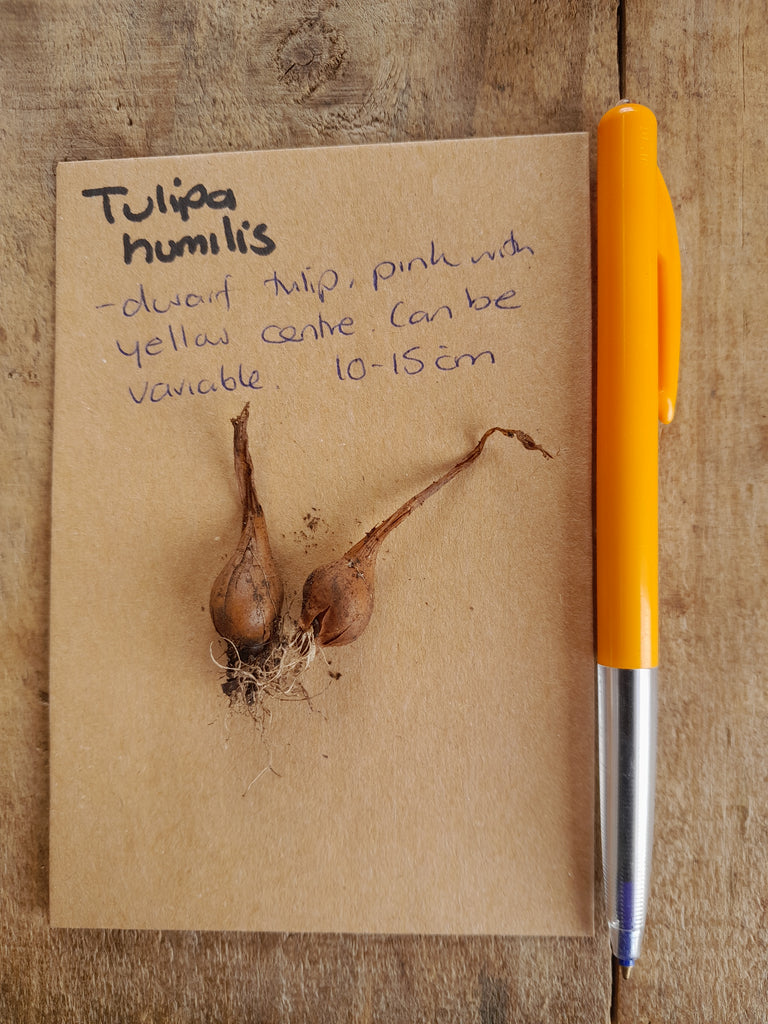 Tulipa
humilis
- dwarf tulip, pink with
yellow centre. Can be
variable. 10-15 cm